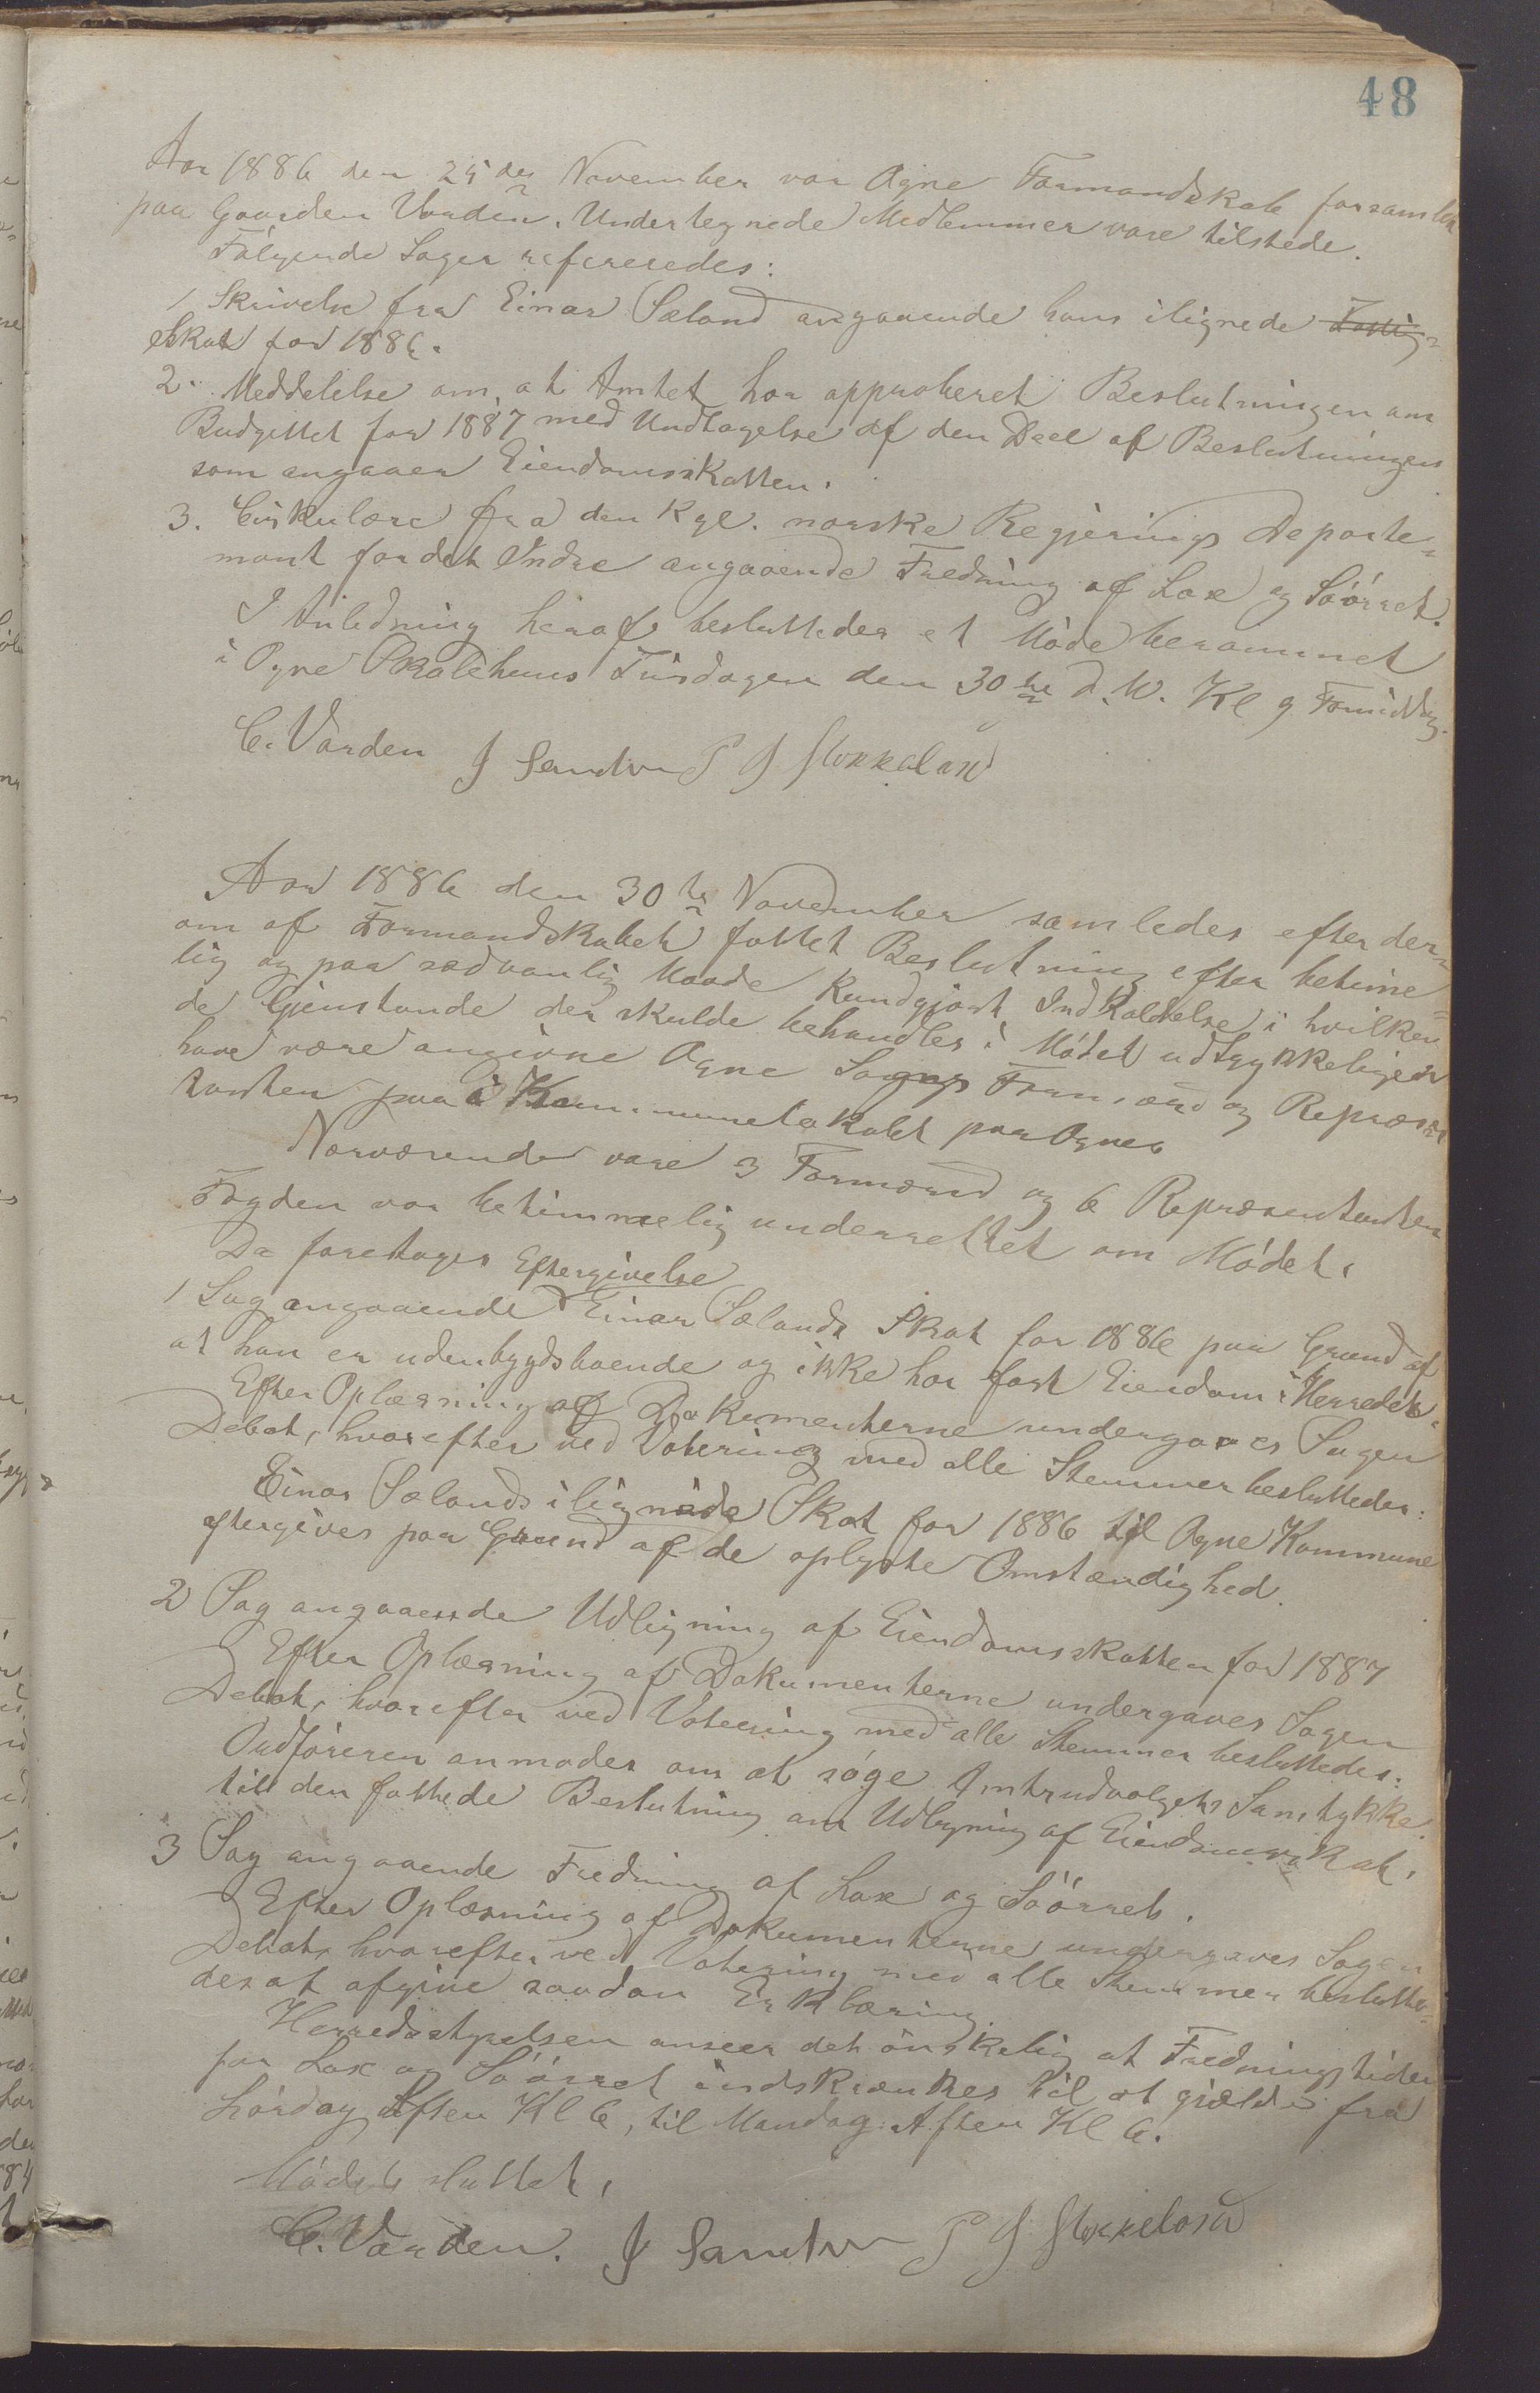 48
Aar 1886 den 25des November var Ogne Formandskab forsamlet
paa Gaarden Varden. Undertegnede Medlemmer vare tilstede.
Følgende Sager refereredes:
1 Skrivelse fra Einar Sæland angaaende hans ilignede
Skat for 1886.
2. Meddelelse om, at Amtet har approberet Beslutningen om
Budgettet for 1887 med Undtagelse af den Deel af Beslutningen
som angaaer Eiendomsskatten.
3. Cirkulære fra den Kgl. norske Regjerings Departe=
ment for det Indre angaaende Fredning af Lax og Søørret.
I Anledning heraf besluttedes et Møde berammet
i Ogne Skolehuus Tirsdagen den 30te d. M. Kl 9 Formiddag.
C. Varden J Sandve P J Stokkeland
Aar 1886 den 30te November samledes efter der=
om af Formandskabet fattet Beslutning efter betime=
lig og paa sædvanlig Maade Kundgjort Indkaldelse i hvilken
de Gjenstande der skulde behandles i Mødet udtrykkeligen
have være angivne Ogne Sogns Formænd og Repræsen
tanter paa Kommunelokalet paa Ogne.
Nærværende vare 3 Formænd og 6 Repræsentanter
Fogden var betimmelig underrettet om Mødet.
Da foretoges
Eftergivelse
1 Sag angaaende Einar Sælands Skat for 1886 paa Grund af
at han er udenbygdsboende og ikke har fast Eiendom i Herredet.
Efter Oplæsning af Dokumenterne undergaves Sagen
Debat, hvorefter ved Votering med alle Stemmer besluttedes:
Einar Sælands ilignede Skat for 1886 til Ogne Kommune
eftergives paa Grund af de oplyste Omstændighed.
2 Sag angaaende Udligning af Eiendomsskatten for 1887
Efter Oplæsning af Dokumenterne undergaves Sagen
Debat, hvorefter ved Votering med alle Stemmer besluttedes:
Ordføreren anmodes om at søge Amtsudvalgets Samtykke
til den fattede Beslutning om Udligning af Eiendomsskat.
3 Sag angaaende Fredning af Lax og Søørret.
Efter Oplæsning af Dokumenterne undergaves Sagen
Debat, hvorefter ved Votering med alle Stemmer beslutte=
des at afgive saadan Erklæring.
Herredsstyrelsen anseer det ønskelig at Fredningstiden
for Lax og Søørret indskrænkes til at gjælde fra
Lørdag Aften Kl 6, til Mandag Aften Kl 6.
Mødet sluttet.
C. Varden. J Sandve P J Stokkeland